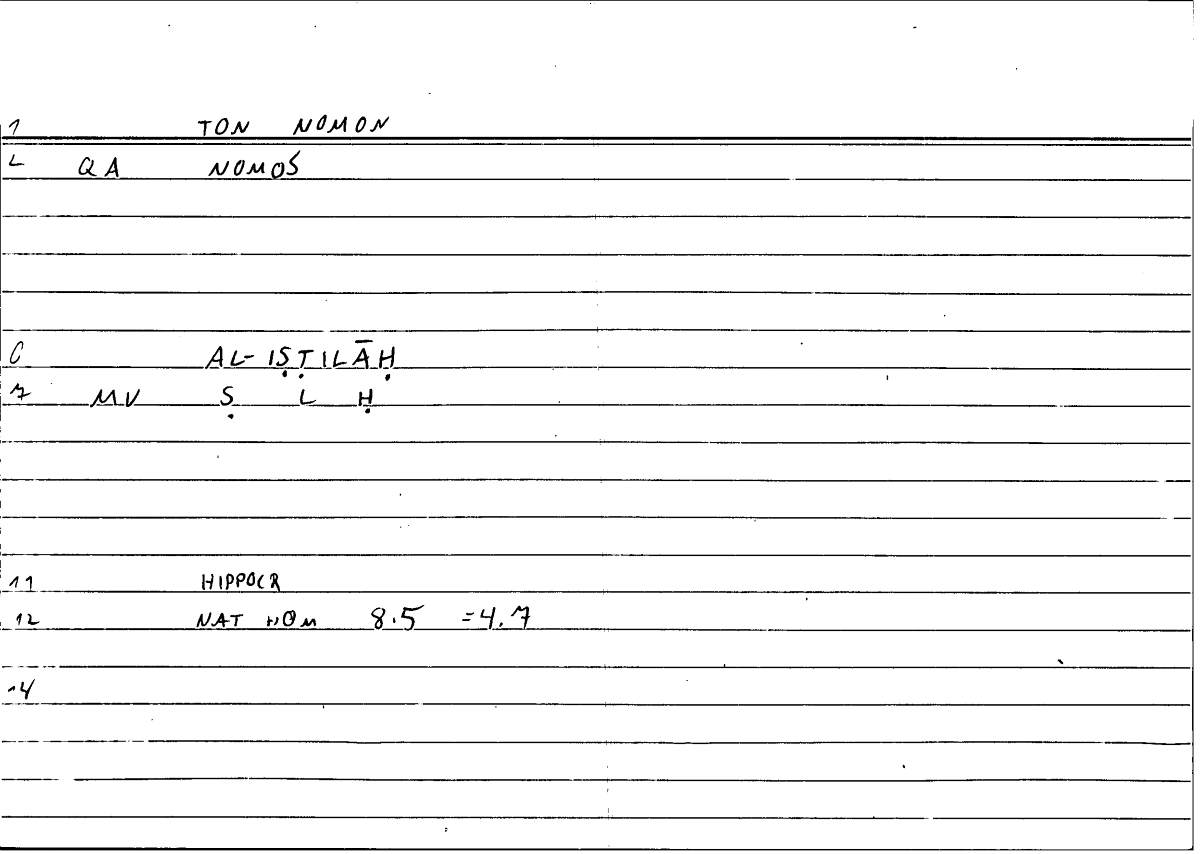 1 TON NOMON
2 QA NOMOS
6 AL-IṢṬILĀḤ
7 MV Ṣ L Ḥ
11 HIPPOCR
12 NAT HOM 8.5 =4.7
14